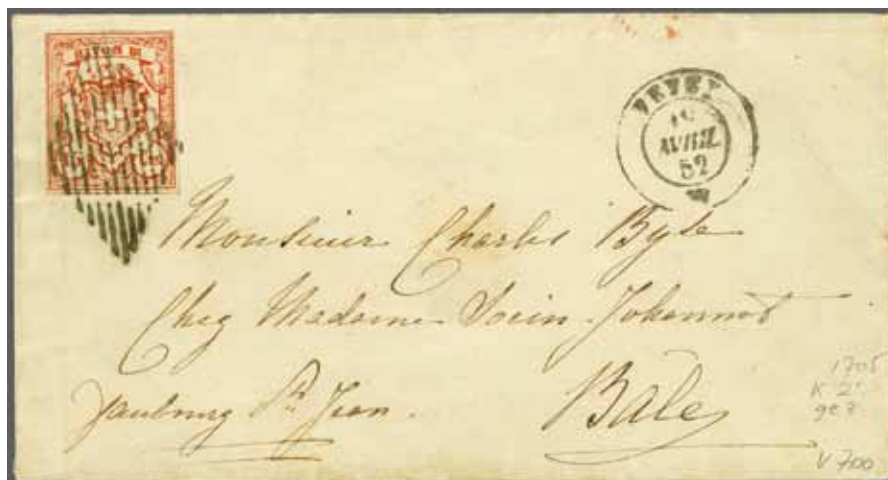 RAYON III
VEVEY
AVRIL
52
Monsieur Charles
Chez Madame Socin-Johannot
faubourg St Jean.
Bâle
1705
K 2.
gez.
V 700